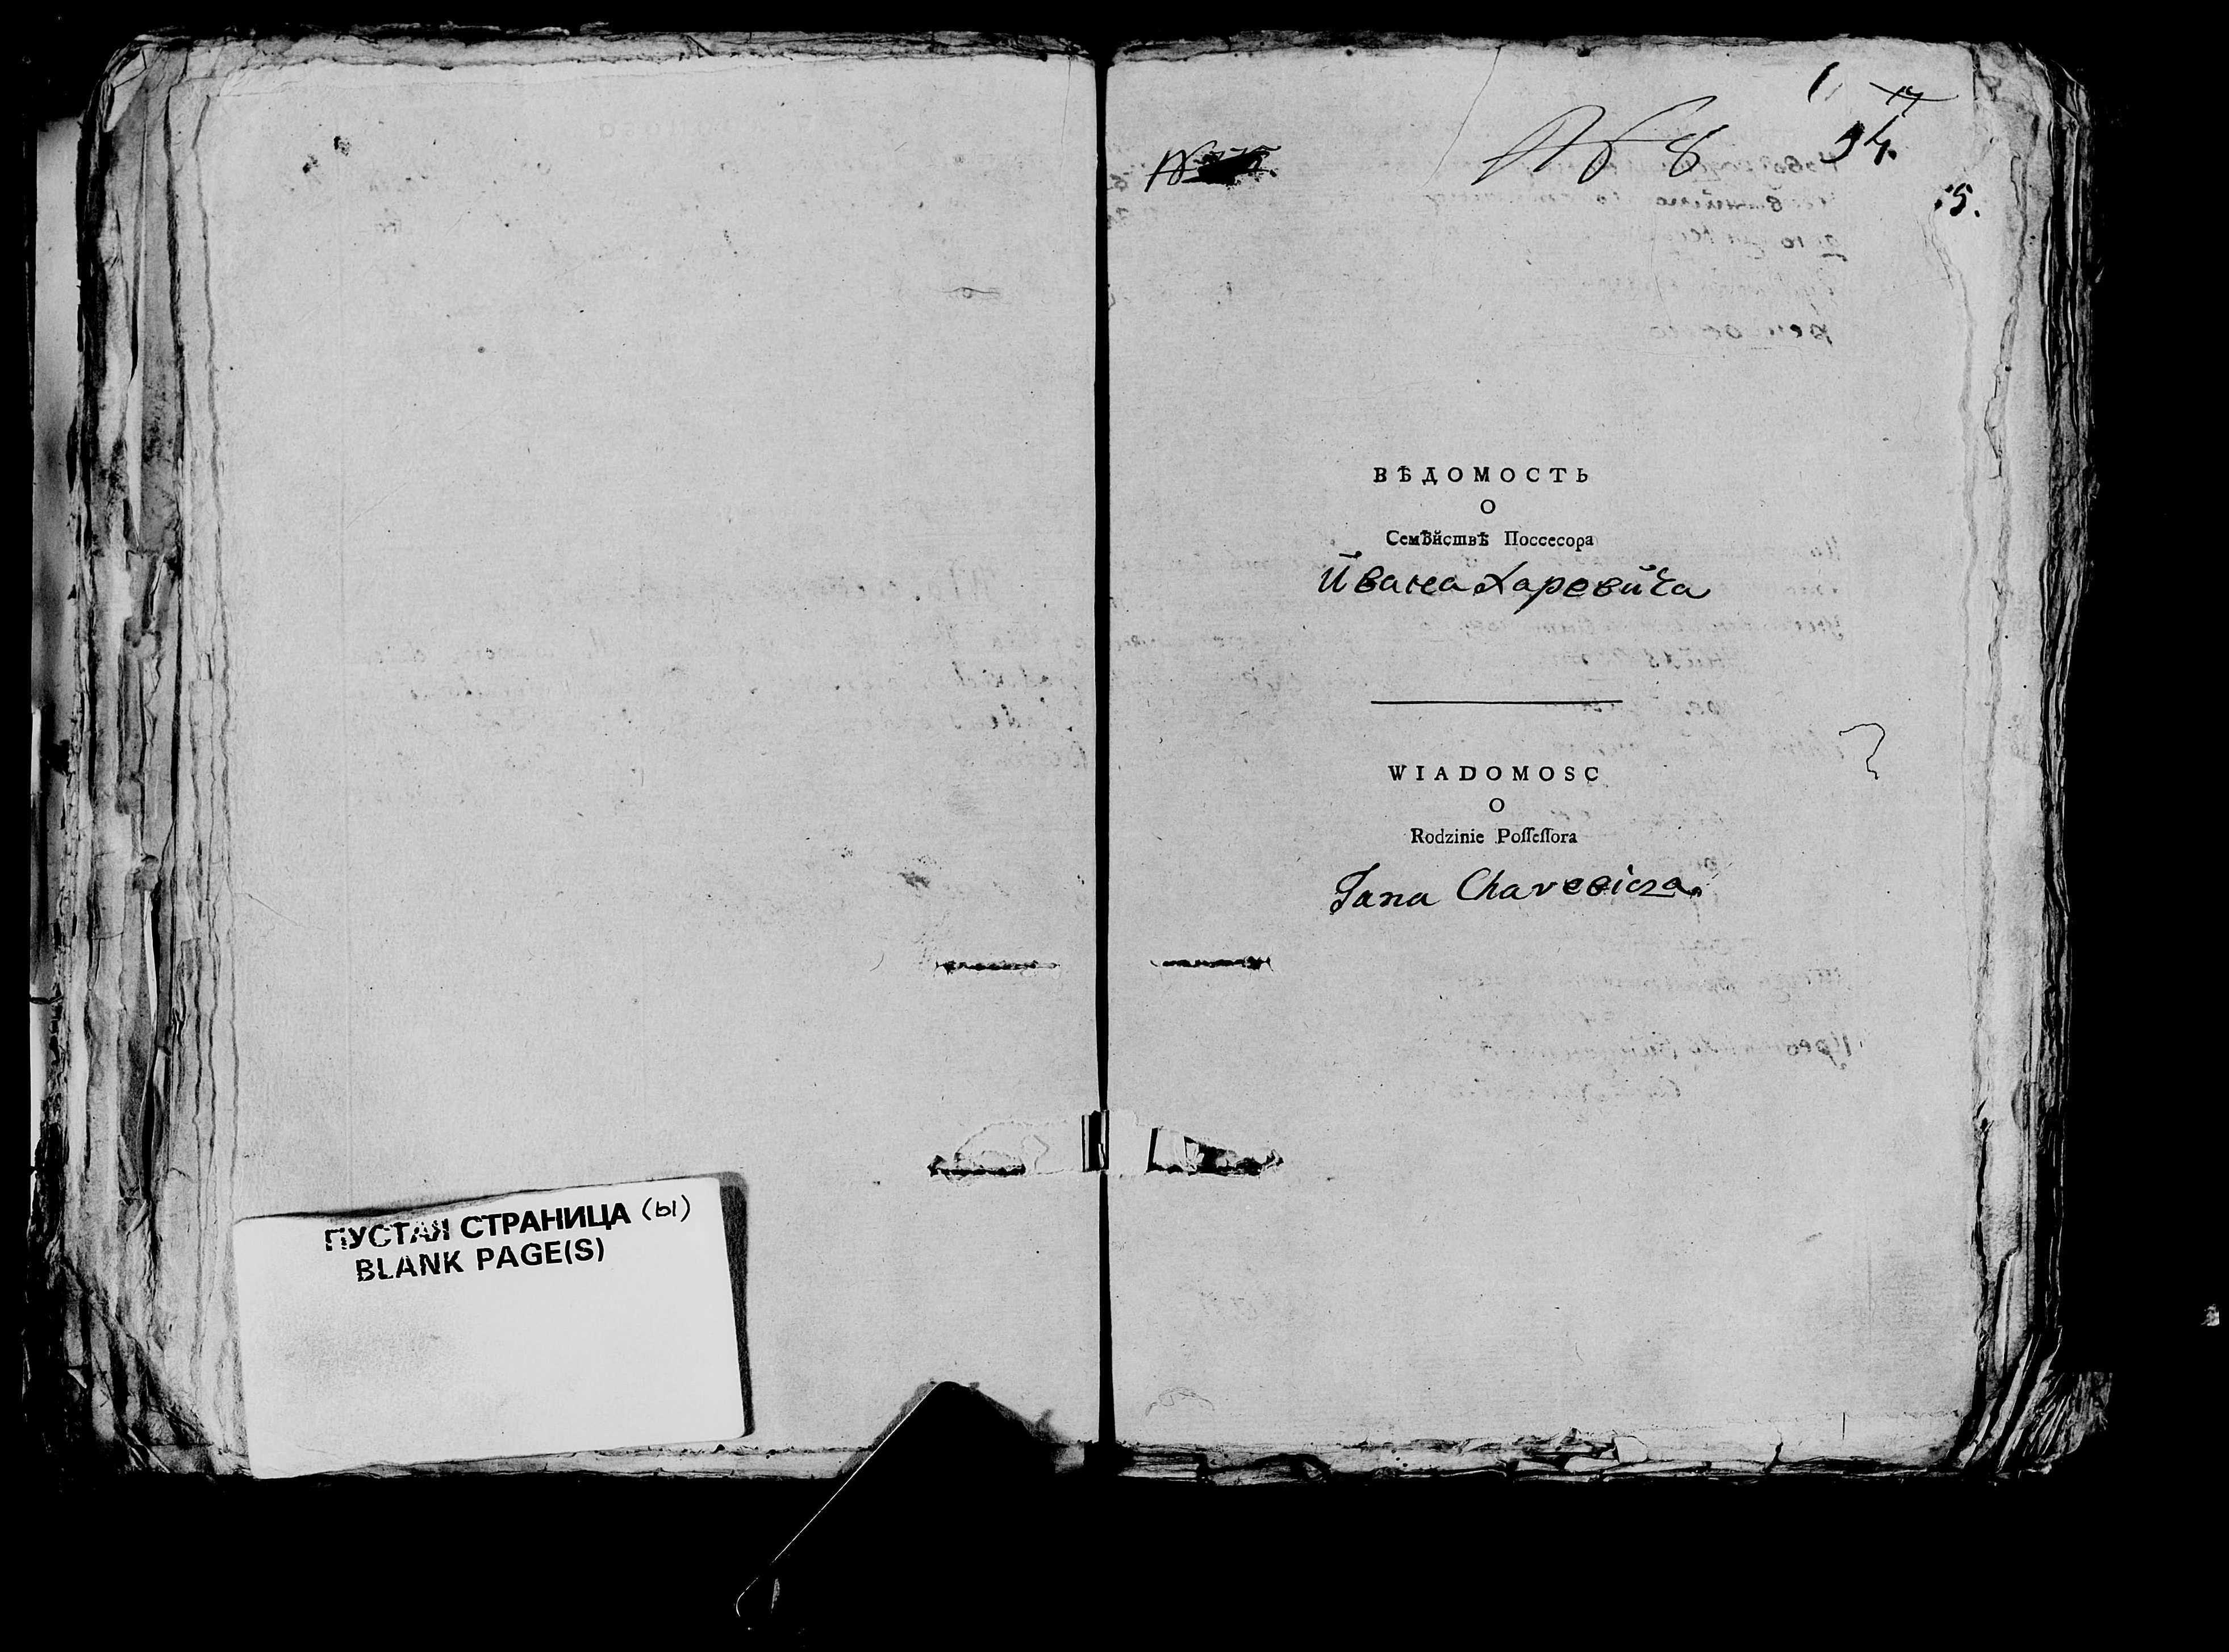 ПУСТАЯ СТРАНИЦА (ы)
BLANK PAGE(S)
№ 8
34.
ВѢДОМОСТЬ
О
Семѣйствѣ Поссесора
Ивана Харевича
WIADOMOSC
O
Rodzinie Poſſeſſora
Jana Charewicza.